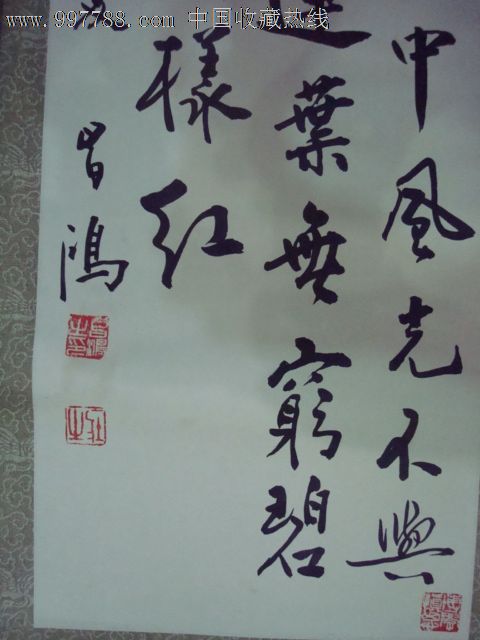 www.997788.com 中国收藏热线
中風光不與
葉無窮碧
樣红
鴻